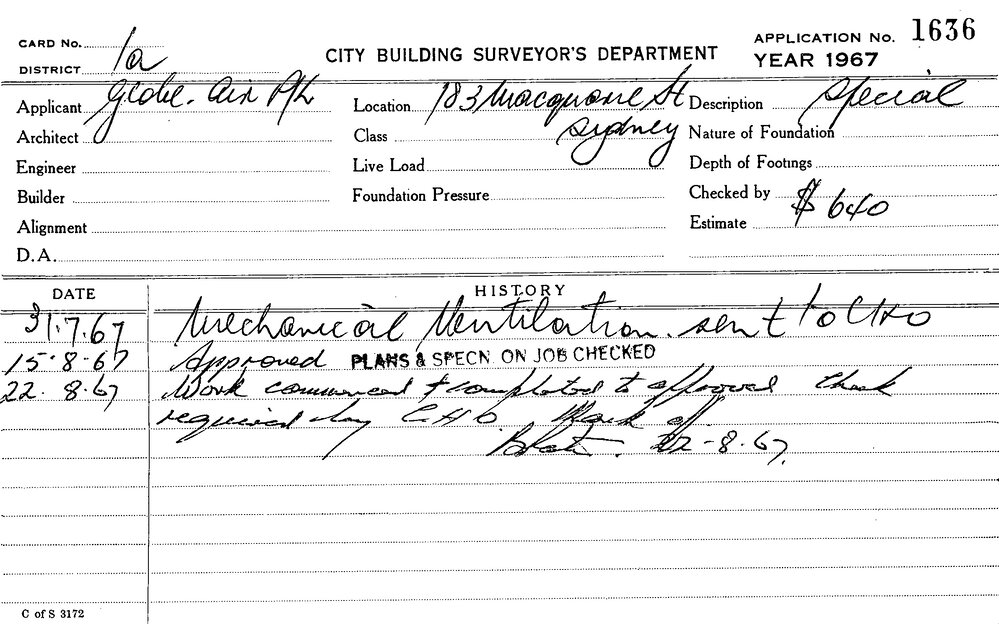 CARD No.
DISTRICT 1a
CITY BUILDING SURVEYOR'S DEPARTMENT
APPLICATION No. 1636
YEAR 1967
Applicant Globe. Air P/L
Location 183 Macquarie St Sydney
Description Special
Architect
Class
Nature of Foundation
Engineer
Live Load
Depth of Footings
Builder
Foundation Pressure
Checked by
Alignment
Estimate $640
D.A.
DATE HISTORY
31.7.67 Mechanical Ventilation. sent to CHO
15-8-67 Approved PLANS & SPECN. ON JOB CHECKED
22. 8.67 Work commenced & completed to approved Check
required by C.H.O Mark off
22-8.67.
C of S 3172